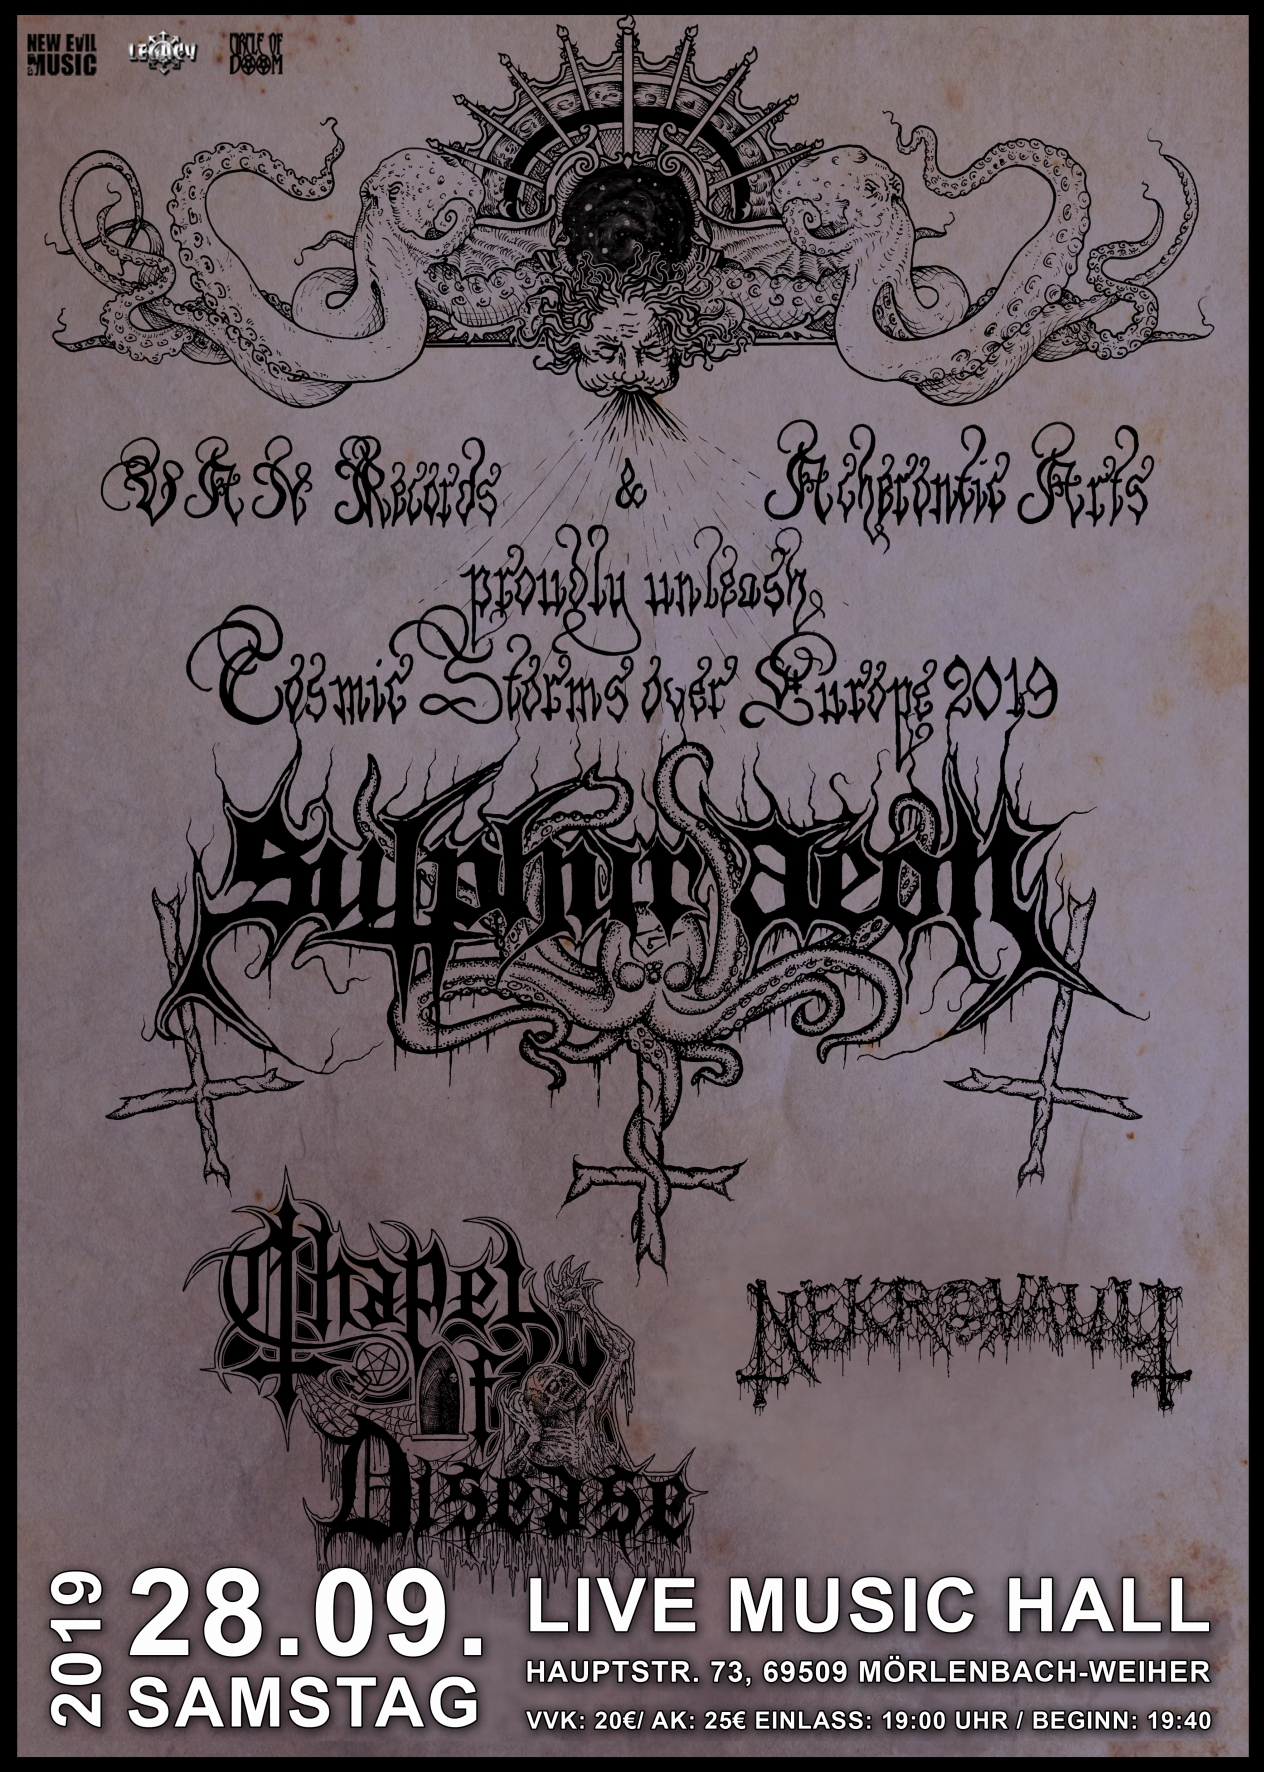 NEW EVIL MUSIC
LEGACY
CIRCLE OF DOOM
VAN Records & Acherontic Arts
proudly unleash
Cosmic Storms over Europe 2019
Sulphur Aeon
Chapel
of
Disease
NEKROVAULT
2019
28.09.
SAMSTAG
LIVE MUSIC HALL
HAUPTSTR. 73, 69509 MÖRLENBACH-WEIHER
VVK: 20€/ AK: 25€ EINLASS: 19:00 UHR / BEGINN: 19:40